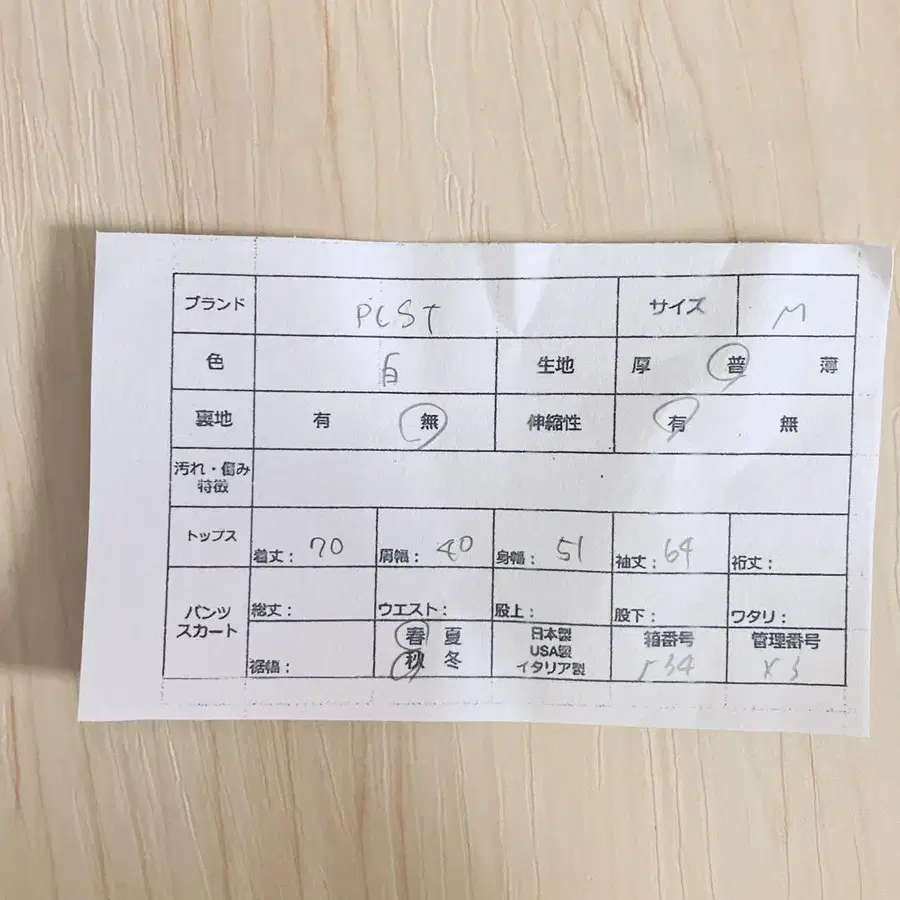 ブランド PLST サイズ M
色 白 生地 厚 普 薄
裏地 有 無 伸縮性 有 無
汚れ・傷み
特徴
トップス 着丈： 70 肩幅： 40 身幅： 51 袖丈： 64 裄丈：
パンツ
スカート
総丈： ウエスト： 股上： 股下： ワタリ：
裾幅：
春 夏
秋 冬
日本製
USA製
イタリア製
箱番号
管理番号